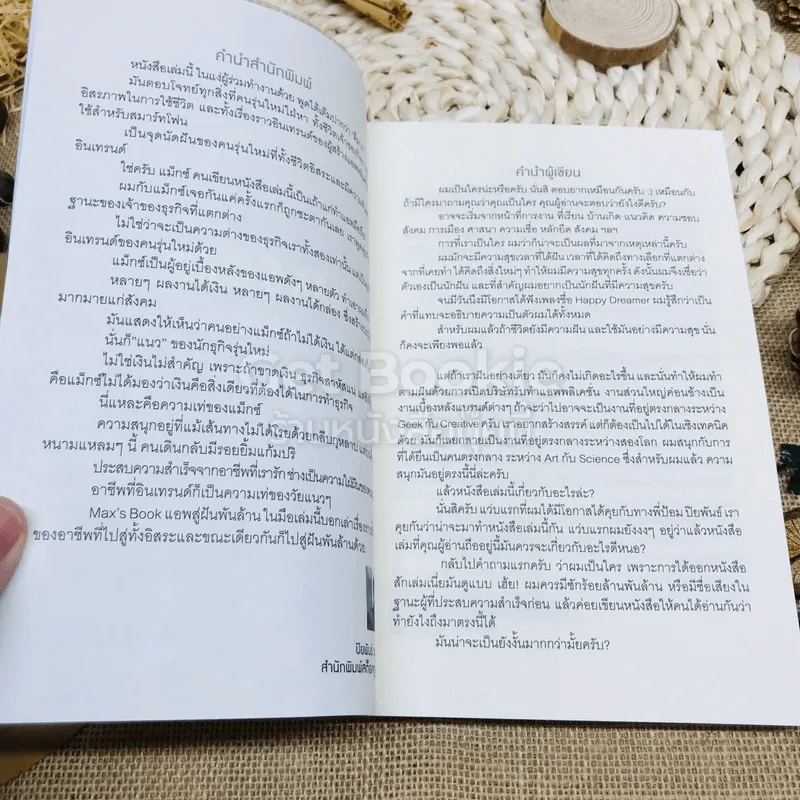 คำนำสำนักพิมพ์
หนังสือเล่มนี้ ในแง่ผู้ร่วมทำงานด้วย พูดได้เต็มปากว่า
มันตอบโจทย์ทุกสิ่งที่คนรุ่นใหม่ใฝ่หา ทั้งชีวิต
อิสรภาพในการใช้ชีวิต และทั้งเรื่องราวอินเทรนด์ของผู้สร้าง
ใช้สำหรับสมาร์ทโฟน
เป็นจุดนัดฝันของคนรุ่นใหม่ที่ทั้งชีวิตอิสระและมี
อินเทรนด์
ใช่ครับ แม็กซ์ คนเขียนหนังสือเล่มนี้เป็นเถ้าแก่ทำแอพ
ผมกับแม็กซ์เจอกันแค่ครั้งแรกก็ถูกชะตากันเลย
ฐานะของเจ้าของธุรกิจที่แตกต่าง
ไม่ใช่ว่าจะเป็นความต่างของธุรกิจเราทั้งสองเท่านั้น
อินเทรนด์ของคนรุ่นใหม่ด้วย
แม็กซ์เป็นผู้อยู่เบื้องหลังของแอพดังๆ หลายตัว
หลายๆ ผลงานได้เงิน หลายๆ ผลงานได้กล่อง
มากมายแก่สังคม
มันแสดงให้เห็นว่าคนอย่างแม็กซ์ถ้าไม่ได้เงิน ได้แต่
นั่นก็"แนว" ของนักธุรกิจรุ่นใหม่
ไม่ใช่เงินไม่สำคัญ เพราะถ้าขาดเงิน ธุรกิจสาหัสแน่
คือแม็กซ์ไม่ได้มองว่าเงินคือสิ่งเดียวที่ต้องได้ในการทำธุรกิจ
นี่แหละคือความเท่ของแม็กซ์
ความสนุกอยู่ที่แม้เส้นทางไม่ได้โรยด้วยกลีบกุหลาบ
หนามแหลมๆ นี้ คนเดินกลับมีรอยยิ้มแก้มปริ
ประสบความสำเร็จจากอาชีพที่เรารัก ช่างเป็นความใฝ่ฝัน
อาชีพที่อินเทรนด์ก็เป็นความเท่ของวัยแนวๆ
Max's Book แอพสู่ฝันพันล้าน ในมือเล่มนี้บอกเล่าเรื่องราว
ของอาชีพที่ไปสู่ทั้งอิสระและขณะเดียวกันก็ไปสู่ฝันพันล้านด้วย
ปิยพันธ์
สำนักพิมพ์
คำนำผู้เขียน
ผมเป็นใครน่ะหรือครับ นั่นสิ ตอบยากเหมือนกันครับ :) เหมือนกับ
ถ้ามีใครมาถามคุณว่าคุณเป็นใคร คุณผู้อ่านจะตอบว่ายังไงดีครับ?
อาจจะเริ่มจากหน้าที่การงาน ที่เรียน บ้านเกิด แนวคิด ความชอบ
สังคม การเมือง ศาสนา ความเชื่อ หลักยึด สังคม ฯลฯ
การที่เราเป็นใคร ผมว่าก็น่าจะเป็นผลที่มาจากเหตุเหล่านี้ครับ
ผมมักจะมีความสุขเวลาที่ได้ฝัน เวลาที่ได้คิดถึงทางเลือกที่แตกต่าง
จากที่เคยทำ ได้คิดถึงสิ่งใหม่ๆ ทำให้ผมมีความสุขทุกครั้ง ดังนั้นผมจึงเชื่อว่า
ตัวเองเป็นนักฝัน และที่สำคัญผมอยากเป็นนักฝันที่มีความสุข
จนมีวันนึงมีโอกาสได้ฟังเพลงชื่อ Happy Dreamer ผมรู้สึกว่าเป็น
คำที่แทบจะอธิบายความเป็นตัวผมได้ทั้งหมด
สำหรับผมแล้วถ้าชีวิตยังมีความฝัน และใช้มันอย่างมีความสุข นั่น
ก็คงจะเพียงพอแล้ว
แต่ถ้าเราฝันอย่างเดียว มันก็คงไม่เกิดอะไรขึ้น และนั่นทำให้ผมทำ
ตามฝันด้วยการเปิดบริษัทรับทำแอพพลิเคชั่น งานส่วนใหญ่ค่อนข้างเป็น
งานเบื้องหลังแบรนด์ต่างๆ ถ้าจะว่าไปอาจจะเป็นงานที่อยู่ตรงกลางระหว่าง
Geek กับ Creative ครับ เราอยากสร้างสรรค์ แต่ก็ต้องเป็นไปได้ในเชิงเทคนิค
ด้วย มันก็เลยกลายเป็นงานที่อยู่ตรงกลางระหว่างสองโลก ผมสนุกกับการ
ที่ได้ยืนเป็นคนตรงกลาง ระหว่าง Art กับ Science ซึ่งสำหรับผมแล้ว ความ
สนุกมันอยู่ตรงนี้นี่ล่ะครับ
แล้วหนังสือเล่มนี้เกี่ยวกับอะไรล่ะ?
นั่นสิครับ แว่บแรกที่ผมได้มีโอกาสได้คุยกับทางพี่ป้อม ปิยพันธ์ เรา
คุยกันว่าน่าจะมาทำหนังสือเล่มนี้กัน แว่บแรกผมยังงงๆ อยู่ว่าแล้วหนังสือ
เล่มที่คุณผู้อ่านถืออยู่นี้มันควรจะเกี่ยวกับอะไรดีหนอ?
กลับไปคำถามแรกครับ ว่าผมเป็นใคร เพราะการได้ออกหนังสือ
สักเล่มเนี่ยมันดูแบบ เฮ้ย! ผมควรมีซักร้อยล้านพันล้าน หรือมีชื่อเสียงใน
ฐานะผู้ที่ประสบความสำเร็จก่อน แล้วค่อยเขียนหนังสือให้คนได้อ่านกันว่า
ทำยังไงถึงมาตรงนี้ได้
มันน่าจะเป็นยังงั้นมากกว่ามั้ยครับ?